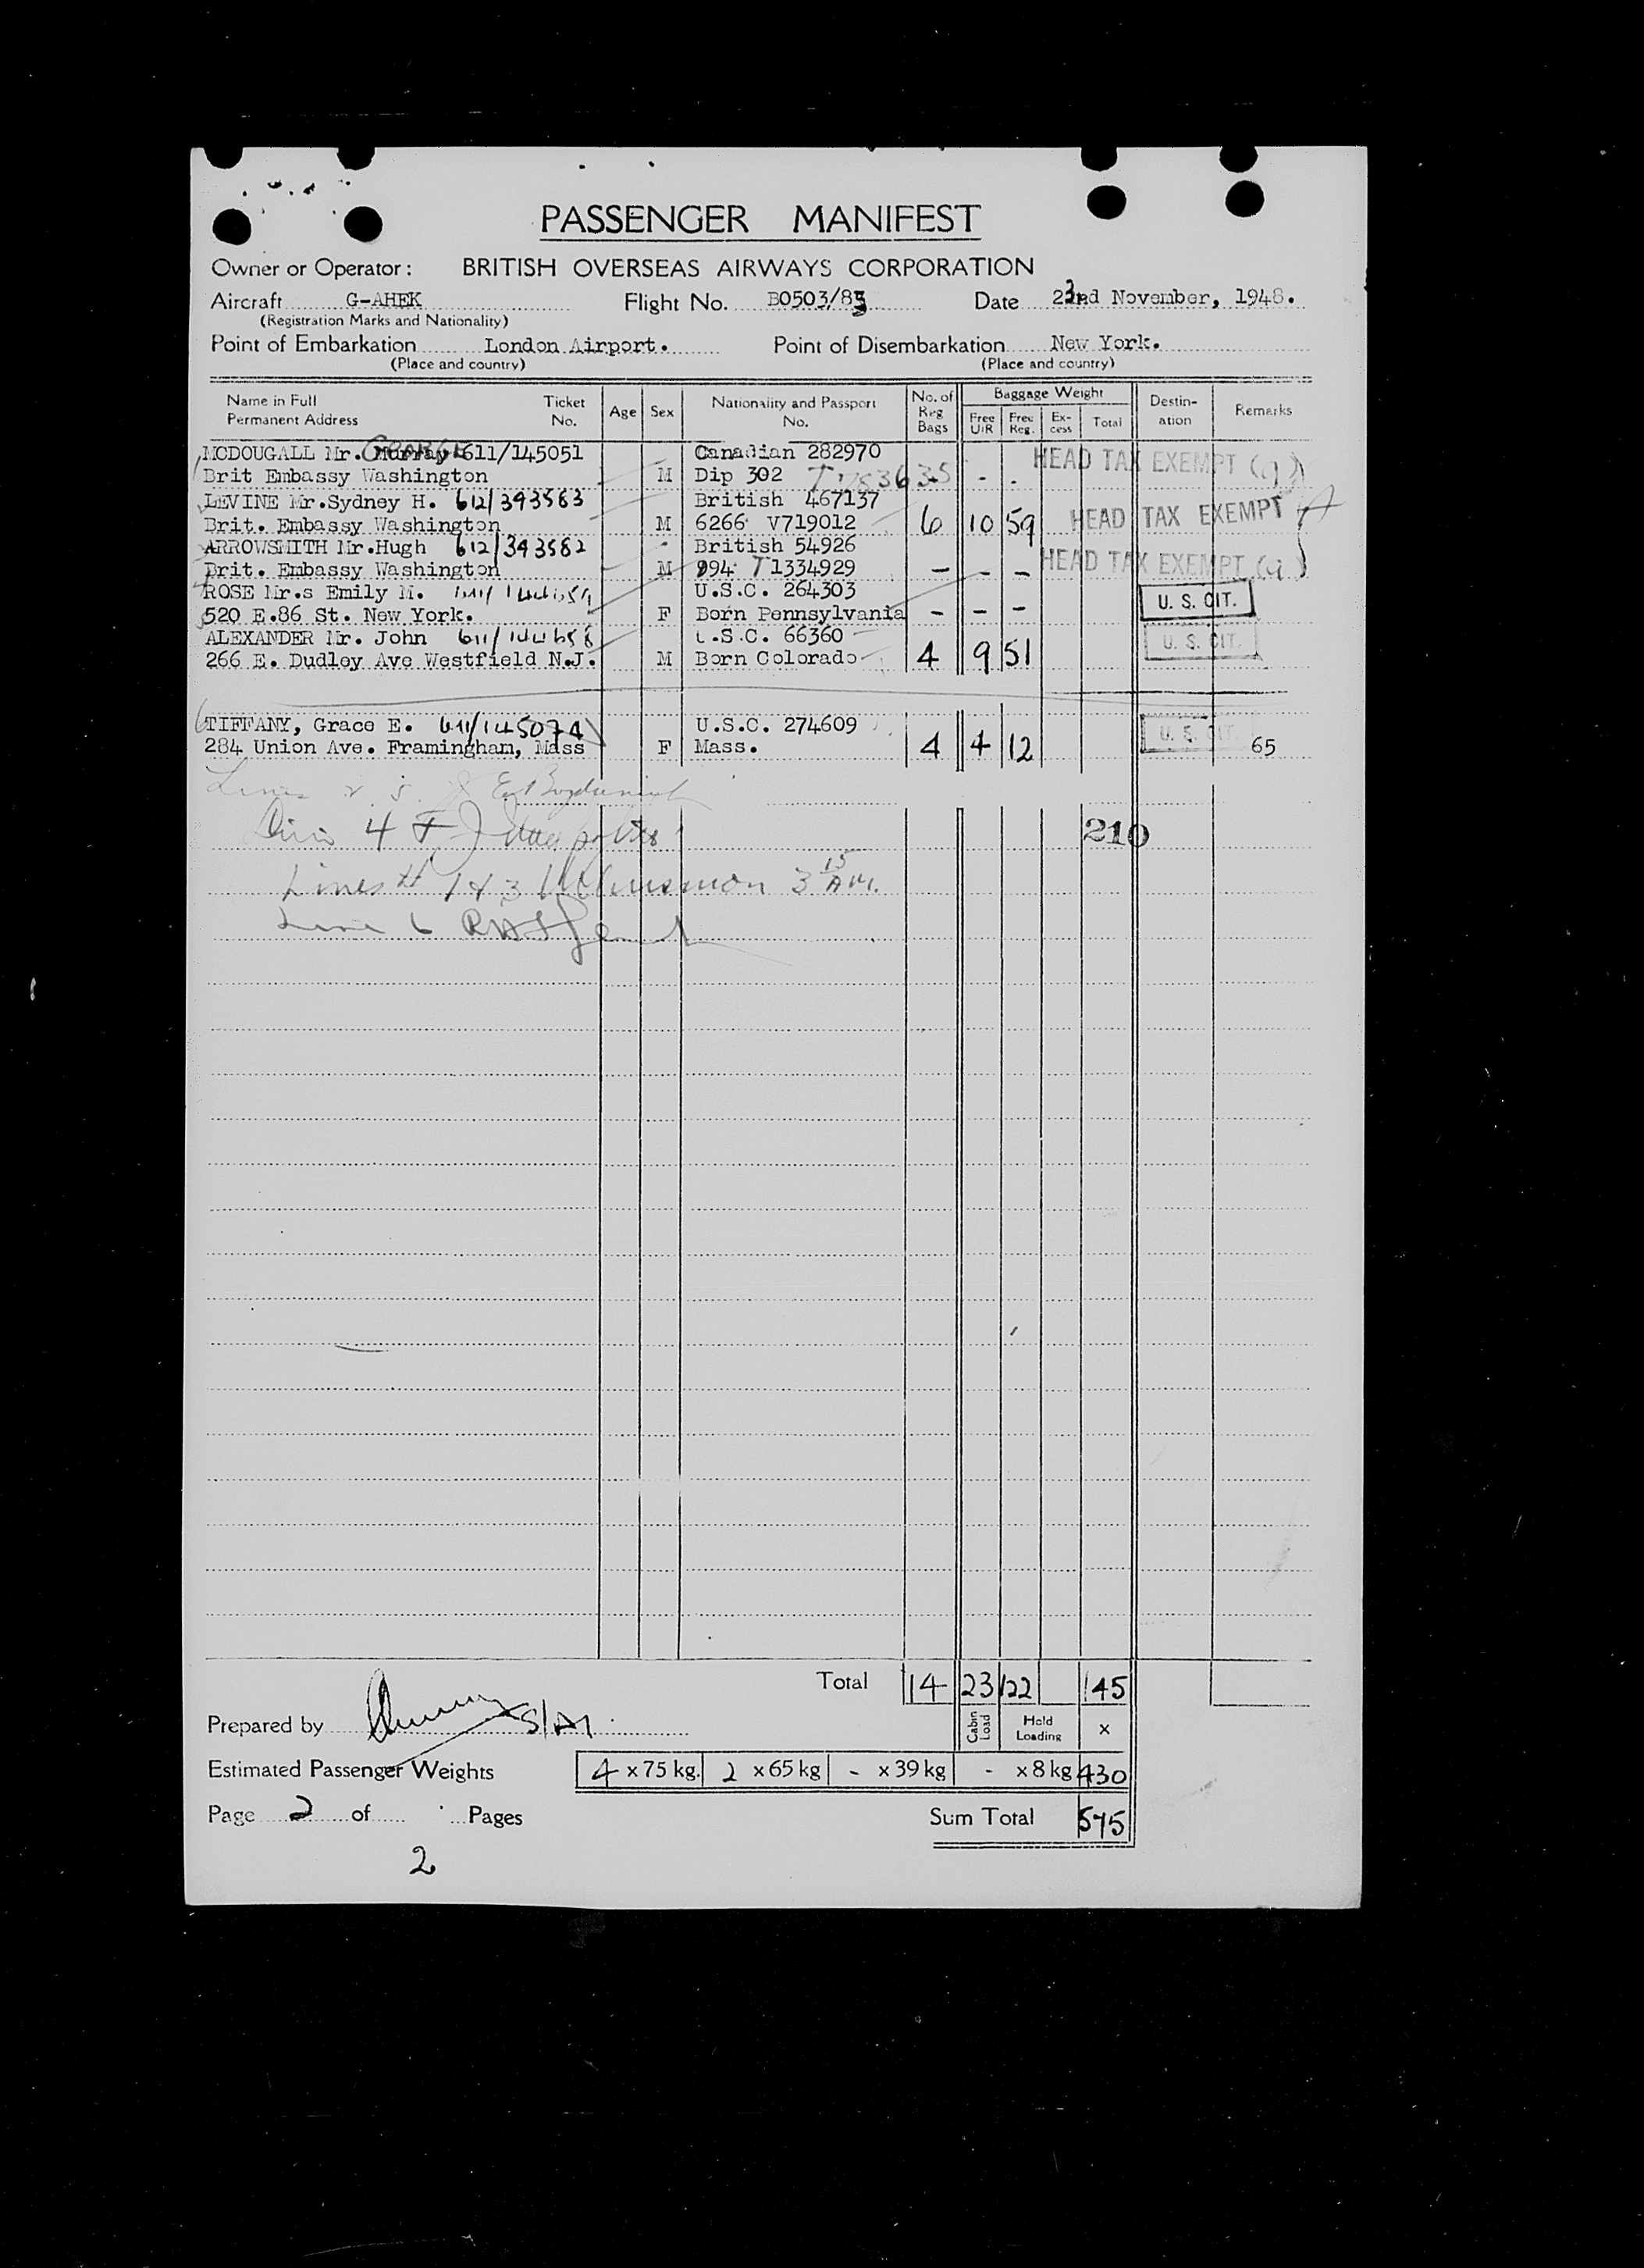 PASSENGER MANIFEST
Owner or Operator: BRITISH OVERSEAS AIRWAYS CORPORATION
Aircraft G-AHEK Flight No. B0503/85 Date 23nd November, 1948.
(Registration Marks and Nationality)
Point of Embarkation London Airport. Point of Disembarkation New York.
(Place and country) (Place and country)
Name in Full Ticket Age Sex Nationality and Passport No. of Reg Bags Baggage Weight Destin-ation Remarks
Permanent Address No. No. Free U/R Free Reg. Ex-cess Total
MCDOUGALL Mr. GEORGE Murray 611/145051 Canadian 282970 HEAD TAX EXEMPT
Brit Embassy Washington M Dip 302 - - .
LEVINE Mr.Sydney H. 612/393583 British 467137
Brit. Embassy Washington M 6266 V719012 6 10 59 HEAD TAX EXEMPT
ARROWSMITH Mr.Hugh 612/393582 British 54926
Brit. Embassy Washington M 994 T1334929 - - - HEAD TAX EXEMPT
ROSE Mr.s Emily M. 611/144659 U.S.C. 264303
520 E.86 St. New York. F Born Pennsylvania - - - U. S. CIT.
ALEXANDER Mr. John 611/144658 U.S.C. 66360
266 E. Dudley Ave Westfield N.J. M Born Colorado 4 9 51 U. S. CIT.
TIFFANY, Grace E. 611/145074 U.S.C. 274609
284 Union Ave. Framingham, Mass F Mass. 4 4 12 U. S. CIT. 65
Lines
4 210
Lines # 1 & 3 3 15 A.M.
Line 6
Total 14 23 122 145
Prepared by Cabin Load Hold Loading x
Estimated Passenger Weights 4 x 75 kg. 2 x 65 kg - x 39 kg - x 8 kg 430
Page 2 of Pages Sum Total 575
2